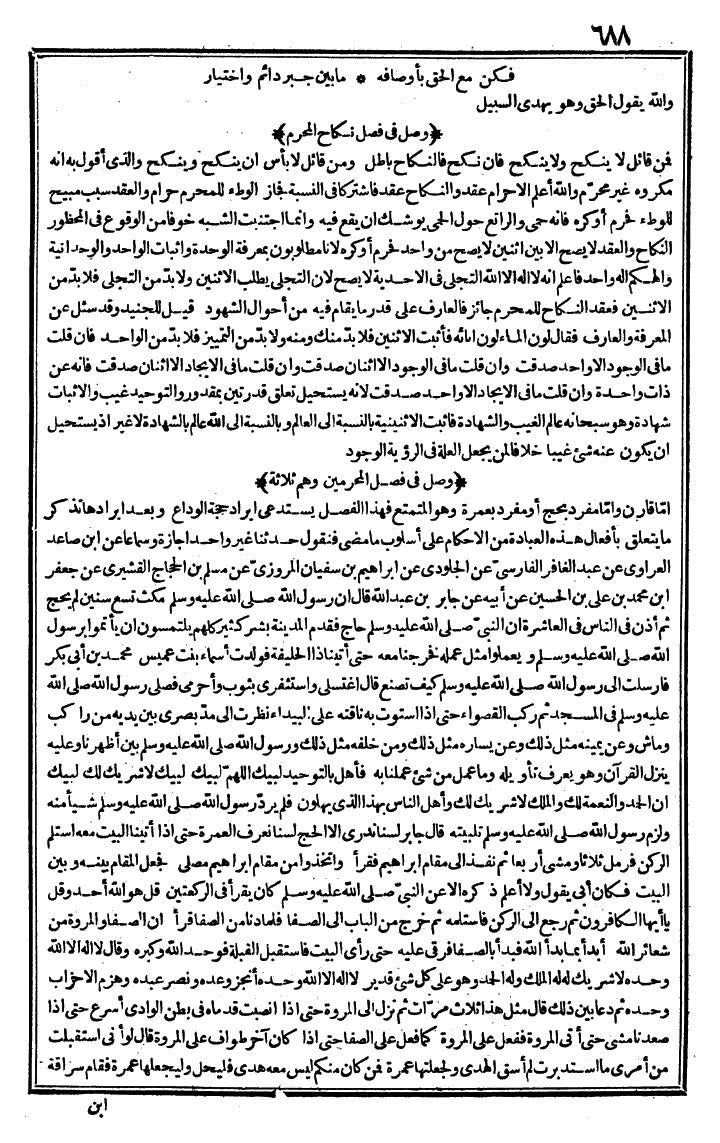 ٦٨٨
فكن مع الحق بأوصافه * ما بين جبر دائم واختيار
والله يقول الحق وهو يهدى السبيل
﴿وصل فى فصل نكاح المحرم﴾
فمن قائل لا ينكح ولا ينكح فان نكح فالنكاح باطل ومن قائل لا بأس ان ينكح وينكح والذى أقول به انه
مكروه غير محرّم والله أعلم الاحرام عقد والنكاح عقد فاشتركا فى النسبة فجاز الوطء للمحرم حرام والعقد سبب مبيح
للوطء فحرم أوكره فانه حمى والراتع حول الحمى يوشك ان يقع فيه وانما اجتنبت الشبه خوفا من الوقوع فى المحظور
النكاح والعقد لا يصح الا بين اثنين لا يصح من واحد فحرم أوكره لانا مطلوبون بمعرفة الوحدة واثبات الواحد والوحدانية
والهكم اله واحد فاعلم انه لا اله الا الله التجلى فى الاحدية لا يصح لان التجلى يطلب الاثنين ولا بدّ من التجلى فلا بدّ من
الاثنين فعقد النكاح للمحرم جائز فالعارف على قدر ما يقام فيه من أحوال الشهود قيل للجنيد وقد سئل عن
المعرفة والعارف فقال لون الماء لون انائه فأثبت الاثنين فلا بدّ منك ومنه ولا بدّ من التمييز فلا بدّ من الواحد فان قلت
ما فى الوجود الا واحد صدقت وان قلت ما فى الوجود الا اثنان صدقت وان قلت ما فى الايجاد الا اثنان صدقت فانه عن
ذات واحدة وان قلت ما فى الايجاد الا واحد صدقت لانه يستحيل تعلق قدرتين بمقدور والتوحيد غيب والاثبات
شهادة وهو سبحانه عالم الغيب والشهادة فأثبت الاثنينية بالنسبة الى العالم وبالنسبة الى الله عالم بالشهادة لا غير اذ يستحيل
ان يكون عنه شئ غيبا خلافا لمن يجعل العلة فى الرؤية الوجود
﴿وصل فى فصل المحرمين وهم ثلاثة﴾
امّا قارن وامّا مفرد بحج أو مفرد بعمرة وهو المتمتع فهذا الفصل يستدعى ايراد حجة الوداع وبعد ايرادها نذكر
ما يتعلق بأفعال هذه العبادة من الاحكام على أسلوب ما مضى فنقول حدثنا غير واحد اجازة وسماعا عن ابن صاعد
العراوى عن عبد الغافر الفارسىّ عن الجلودى عن ابراهيم بن سفيان المروزىّ عن مسلم بن الحجاج القشيرى عن جعفر
ابن محمد بن على بن الحسين عن أبيه عن جابر بن عبد الله قال ان رسول الله صلى الله عليه وسلم مكث تسع سنين لم يحج
ثم أذن فى الناس فى العاشرة ان النبىّ صلى الله عليه وسلم حاج فقدم المدينة بشر كثير كلهم يلتمسون ان يأتموا برسول
الله صلى الله عليه وسلم ويعملوا مثل عمله فخرجنا معه حتى أتينا ذا الحليفة فولدت أسماء بنت عميس محمد بن أبى بكر
فارسلت الى رسول الله صلى الله عليه وسلم كيف تصنع قال اغتسلى واستثفرى بثوب وأحرمى فصلى رسول الله صلى الله
عليه وسلم فى المسجد ثم ركب القصواء حتى اذا استوت به ناقته على البيداء نظرت الى مدّ بصرى بين يديه من راكب
وماش وعن يمينه مثل ذلك وعن يساره مثل ذلك ومن خلفه مثل ذلك ورسول الله صلى الله عليه وسلم بين أظهرنا وعليه
ينزل القرآن وهو يعرف تأويله وما عمل من شئ عملنا به فأهل بالتوحيد لبيك اللهمّ لبيك لبيك لا شريك لك لبيك
ان الحمد والنعمة لك والملك لا شريك لك وأهل الناس بهذا الذى يهلون فلم يردّ رسول الله صلى الله عليه وسلم شيأ منه
ولزم رسول الله صلى الله عليه وسلم تلبيته قال جابر لسنا ندرى الا الحج لسنا نعرف العمرة حتى اذا أتينا البيت معه استلم
الركن فرمل ثلاثا ومشى أربعا ثم نفذ الى مقام ابراهيم فقرأ واتخذوا من مقام ابراهيم مصلى فجعل المقام بينه وبين
البيت فكان أبى يقول ولا أعلم ذكره الا عن النبىّ صلى الله عليه وسلم كان يقرأ فى الركعتين قل هو الله أحد وقل
يا أيها الكافرون ثم رجع الى الركن فاستلمه ثم خرج من الباب الى الصفا فلما دنا من الصفا قرأ ان الصفا والمروة من
شعائر الله أبدأ بما بدأ الله فبدأ بالصفا فرقى عليه حتى رأى البيت فاستقبل القبلة فوحد الله وكبره وقال لا اله الا الله
وحده لا شريك له له الملك وله الحمد وهو على كل شئ قدير لا اله الا الله وحده أنجز وعده ونصر عبده وهزم الاحزاب
وحده ثم دعا بين ذلك قال مثل هذا ثلاث مرّات ثم نزل الى المروة حتى اذا انصبت قدماه فى بطن الوادى أسرع حتى اذا
صعدنا مشى حتى أتى المروة ففعل على المروة كما فعل على الصفا حتى اذا كان آخر طواف على المروة قال لو أنى استقبلت
من أمرى ما استدبرت لم أسق الهدى ولجعلتها عمرة فمن كان منكم ليس معه هدى فليحل وليجعلها عمرة فقام سراقة
ابن